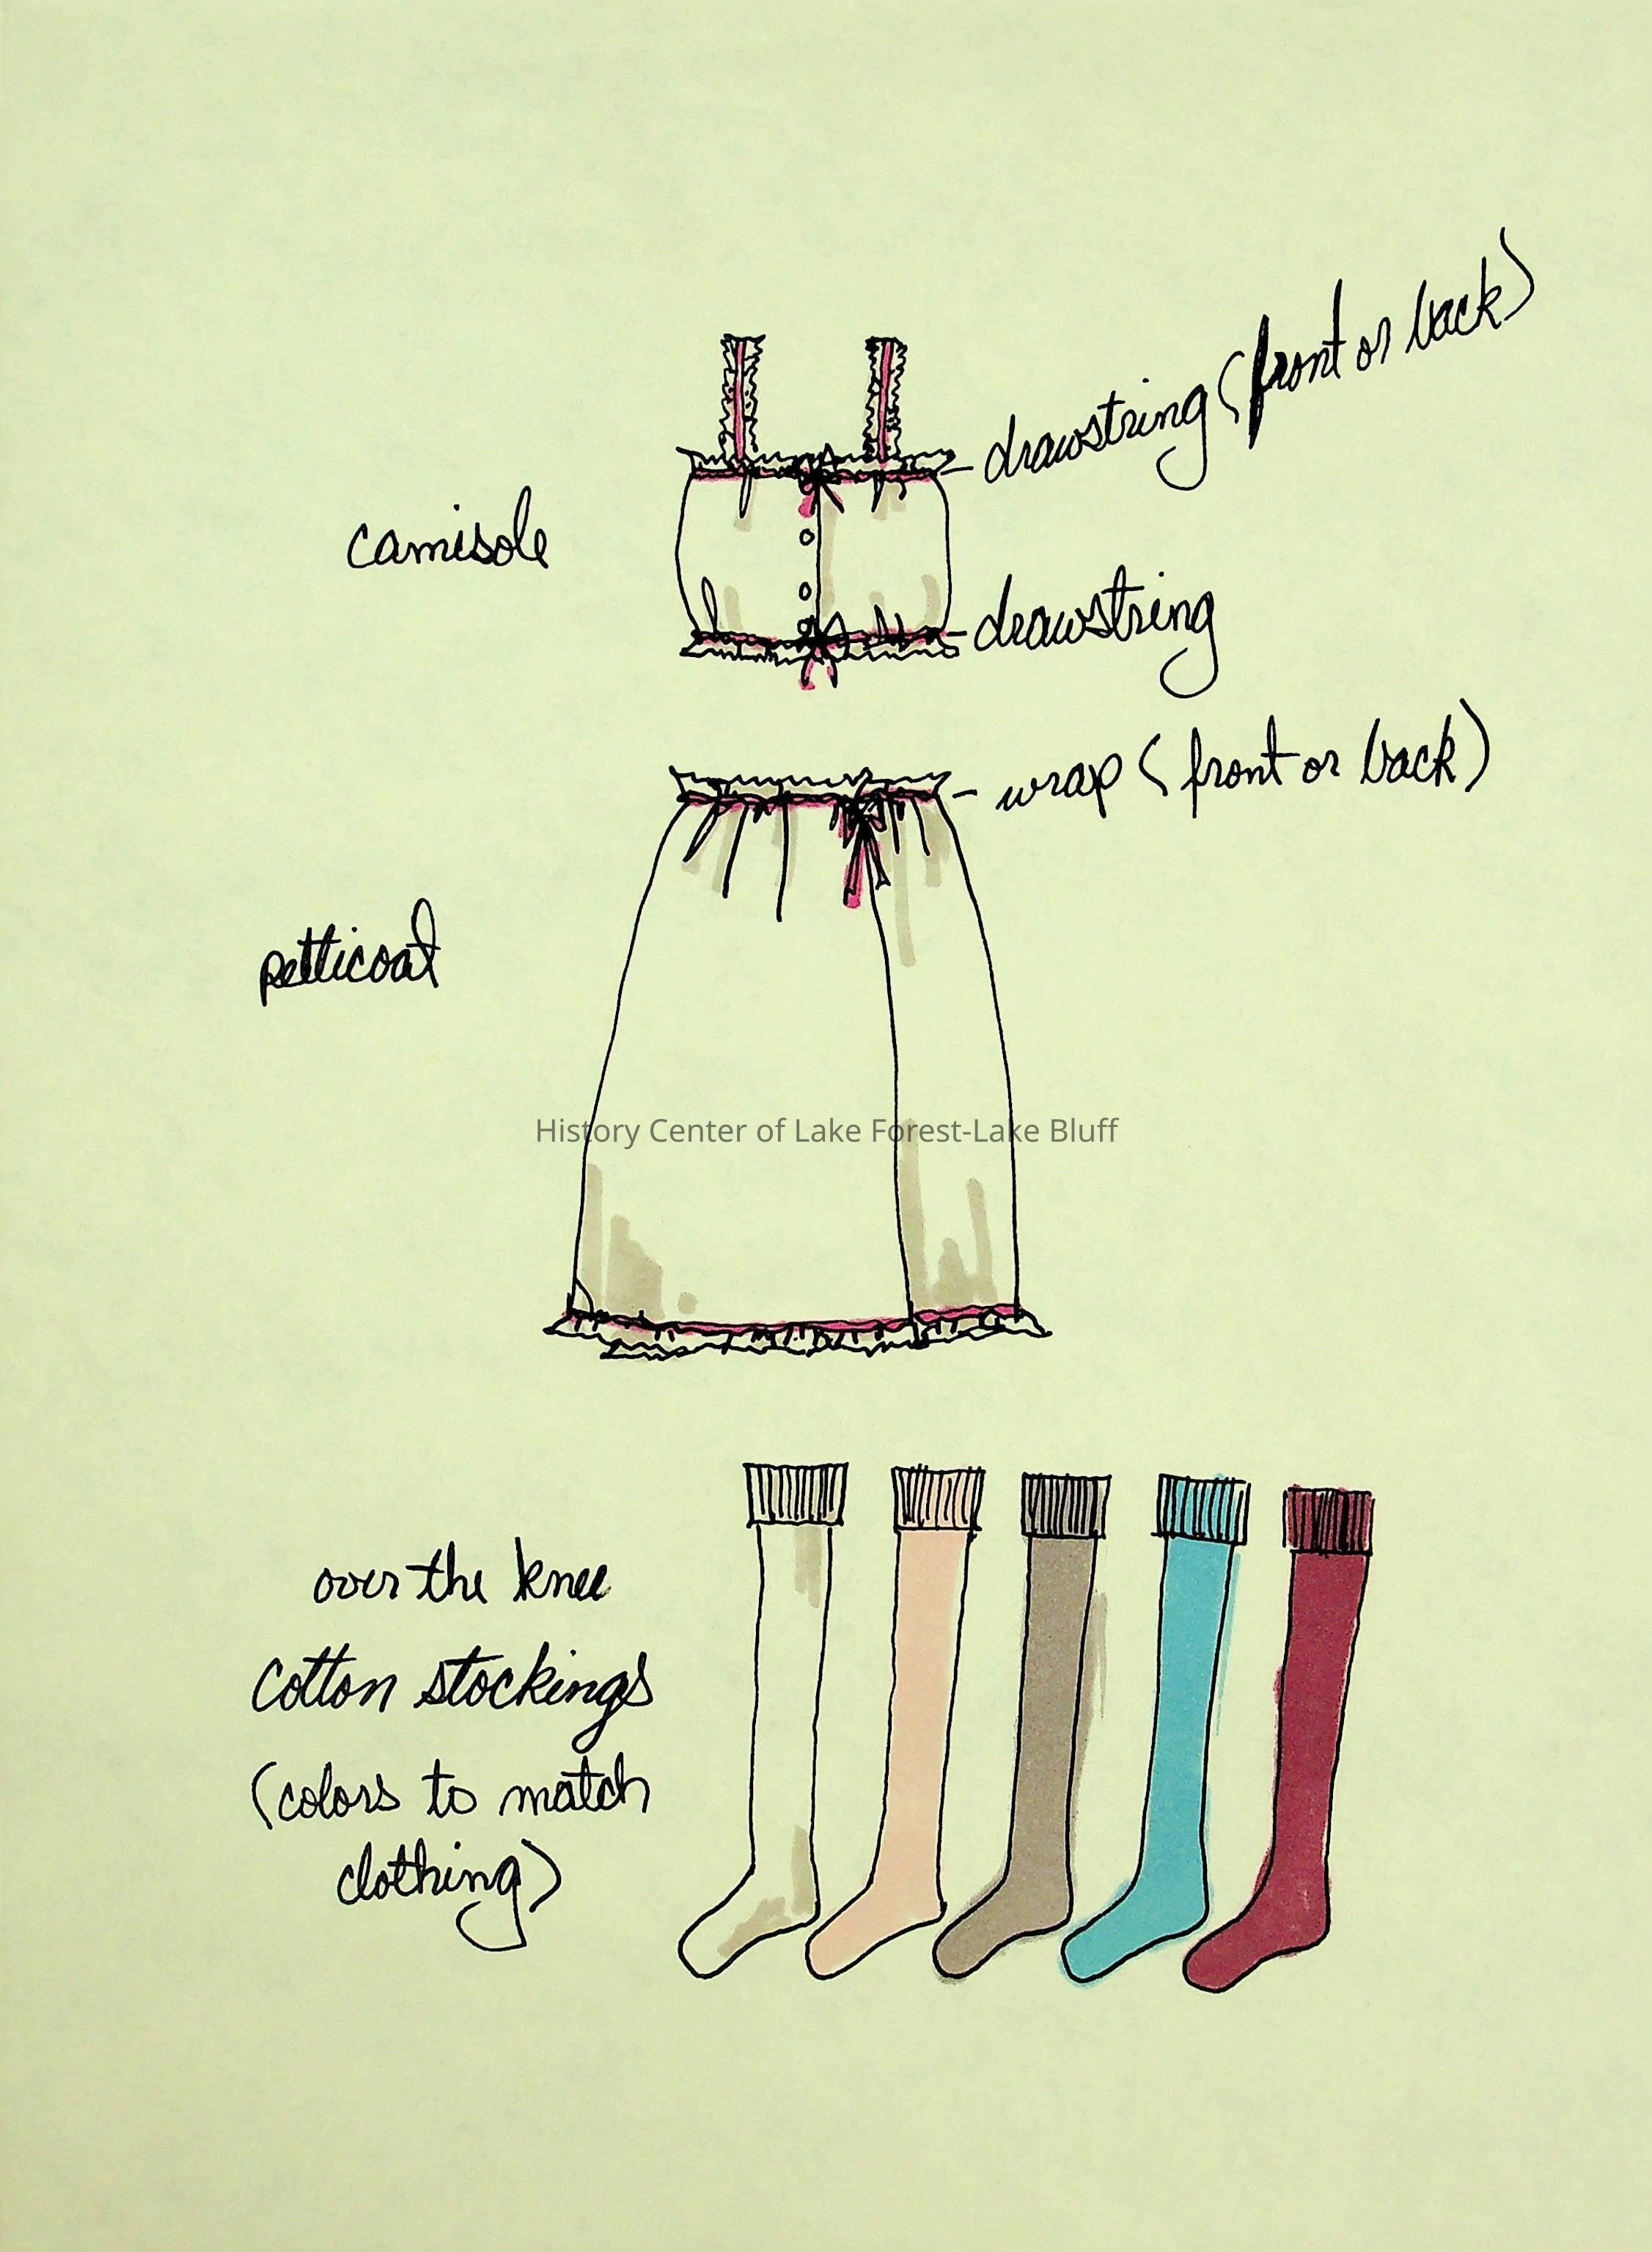 drawstring (front or back)
camisole
drawstring
wrap (front or back)
petticoat
History Center of Lake Forest-Lake Bluff
over the knee
cotton stockings
(colors to match
clothing)